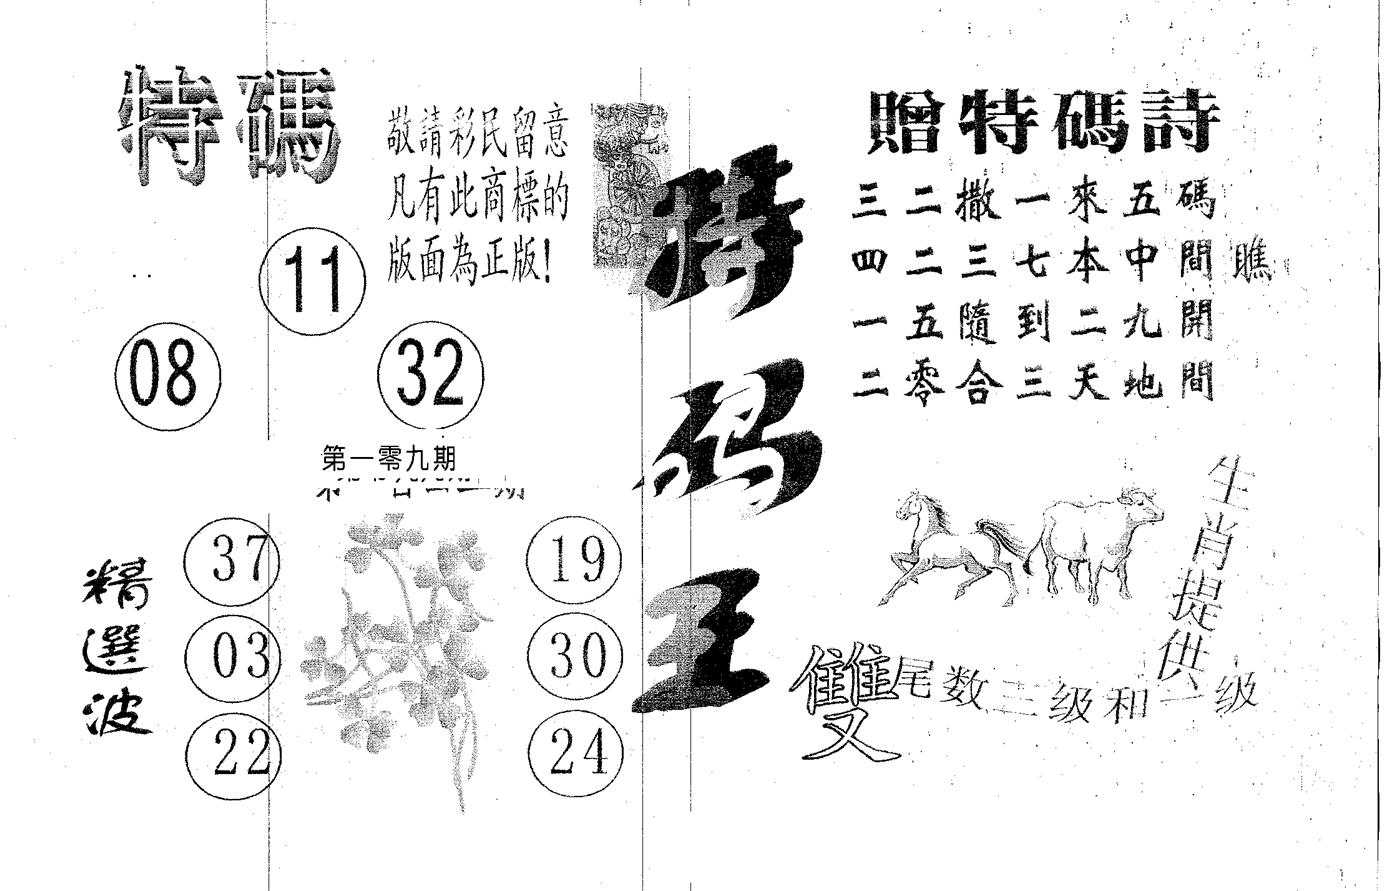 特碼
敬請彩民留意
凡有此商標的
版面為正版!
11
08
32
第一零九期
精選波
37
03
22
19
30
24
特码王
贈特碼詩
三二撒一來五碼
四二三七本中間瞧
一五隨到二九開
二零合三天地間
生肖提供
雙尾数二级和一级